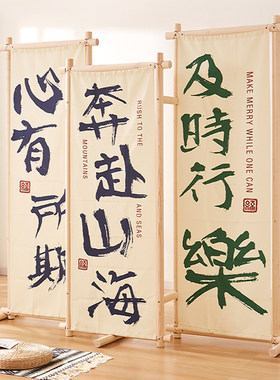 心有所期
奔赴山海
RUSH TO THE
MOUNTAINS
AND SEAS
及時行樂
MAKE MERRY WHILE ONE CAN